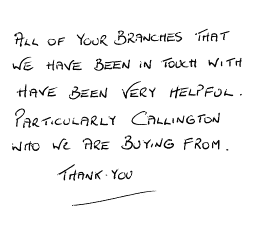 ALL OF YOUR BRANCHES THAT
WE HAVE BEEN IN TOUCH WITH
HAVE BEEN VERY HELPFUL.
PARTICULARLY CALLINGTON
WHO WE ARE BUYING FROM.
THANK-YOU